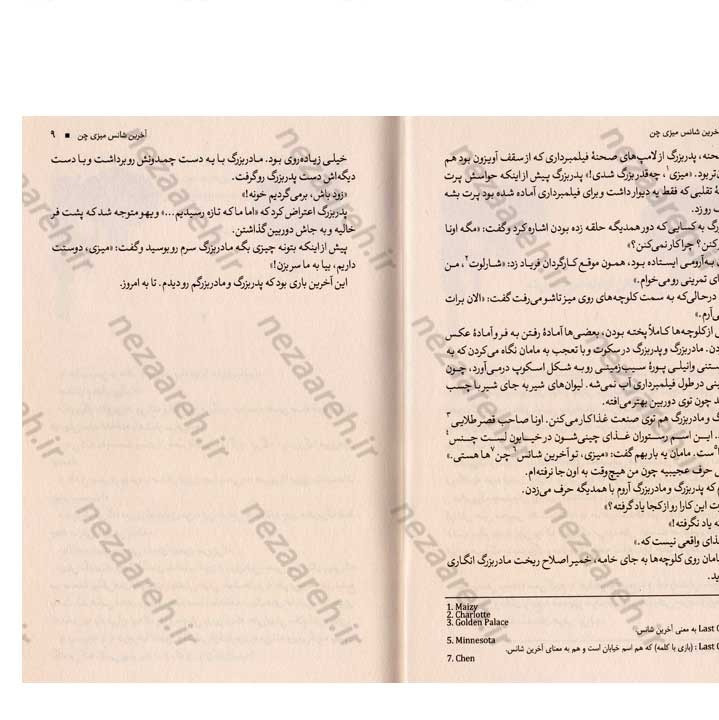 آخرین شانس میزی چن
پدربزرگ از لامپ‌های صحنهٔ فیلمبرداری که از سقف آویزون بود هم
بود. «میزی۱، چه‌قدر بزرگ شدی!» پدربزرگ پیش از اینکه حواسش پرت
تقلبی که فقط یه دیوار داشت و برای فیلمبرداری آماده شده بود پرت بشه
به کسایی که دور همدیگه حلقه زده بودن اشاره کرد و گفت: «مگه اونا
چرا کار نمی‌کنن؟»
به‌آرومی ایستاده بود، همون موقع کارگردان فریاد زد: «شارلوت۲، من
تمرینی رو می‌خوام.»
در حالی‌که به سمت کلوچه‌های روی میز تاشو می‌رفت گفت: «الان برات
از کلوچه‌ها کاملاً پخته بودن، بعضی‌ها آمادهٔ رفتن به فر و آمادهٔ عکس
مادربزرگ و پدربزرگ در سکوت و با تعجب به مامان نگاه می‌کردن که به
وانیلی پورهٔ سیب‌زمینی رو به شکل اسکوپ درمی‌آورد، چون
در طول فیلمبرداری آب نمی‌شه. لیوان‌های شیر به جای شیر با چسب
چون توی دوربین بهتر می‌افته.
و مادربزرگ هم توی صنعت غذا کار می‌کنن. اونا صاحب قصر طلایی۳
این اسم رستوران غذای چینی‌شون در خیابون لست چنس۴
مامان یه بار بهم گفت: «میزی، تو آخرین شانس چن۷ ها هستی.»
حرف عجیبیه چون من هیچ‌وقت به اون‌جا نرفته‌ام.
که پدربزرگ و مادربزرگ آروم با همدیگه حرف می‌زدن.
این کارا رو از کجا یاد گرفته؟»
یاد نگرفته!»
واقعی نیست که.»
روی کلوچه‌ها به جای خامه، خمیر اصلاح ریخت مادربزرگ انگاری
1. Maizy
2. Charlotte
3. Golden Palace
Last به معنی آخرین شانس.
5. Minnesota
Last : (بازی با کلمه) که هم اسم خیابان است و هم به معنای آخرین شانس.
7. Chen
آخرین شانس میزی چن ■ ۹
خیلی زیاده‌روی بود. مادربزرگ با یه دست چمدونش رو برداشت و با دست
دیگه‌اش دست پدربزرگ رو گرفت.
«زود باش، برمی‌گردیم خونه!»
پدربزرگ اعتراض کرد که «اما ما که تازه رسیدیم...» و یهو متوجه شد که پشت فر
خالیه و یه جاش دوربین گذاشتن.
پیش از اینکه بتونه چیزی بگه مادربزرگ سرم رو بوسید و گفت: «میزی، دوستت
داریم، بیا به ما سر بزن!»
این آخرین باری بود که پدربزرگ و مادربزرگم رو دیدم. تا به امروز.
nezaareh.ir